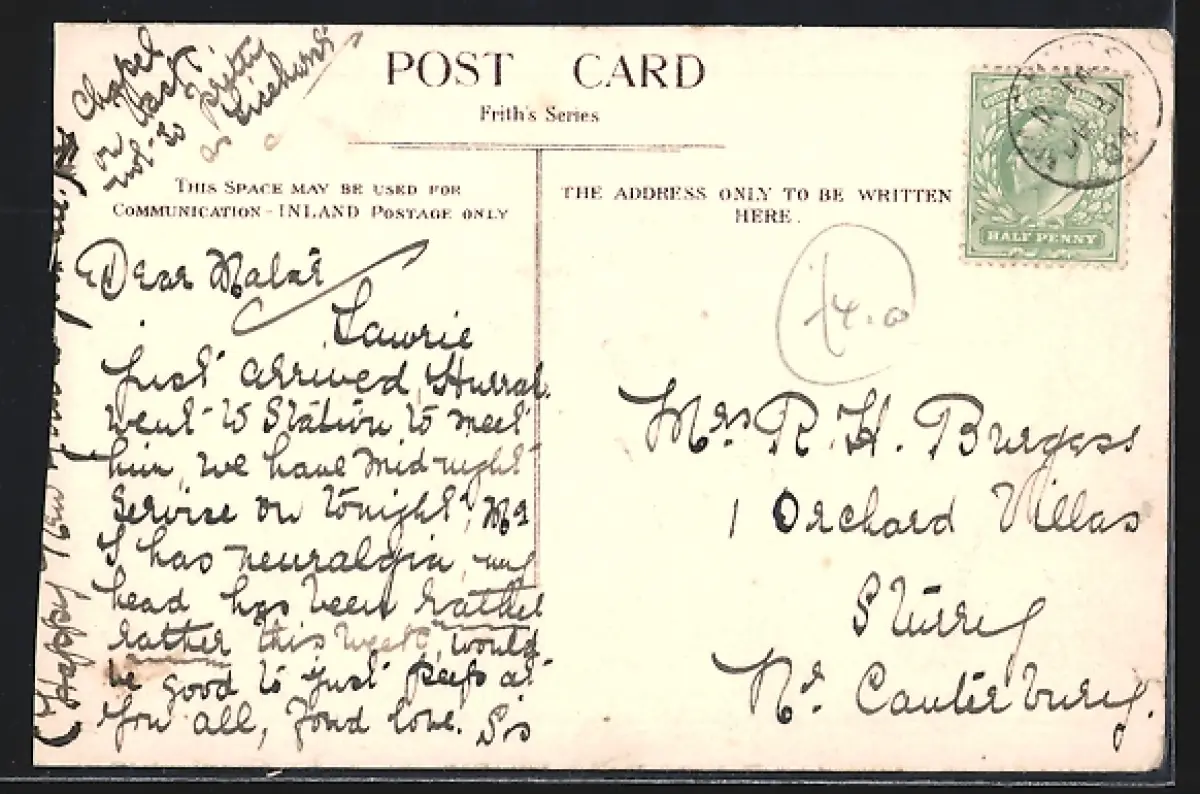 Chapel
on back
not so pretty
as
POST CARD
Frith's Series
THIS SPACE MAY BE USED FOR
COMMUNICATION - INLAND POSTAGE ONLY
THE ADDRESS ONLY TO BE WRITTEN
HERE.
HALF PENNY
Dear
Lawrie
just arrived, Hurrah.
went to Station to meet
him, we have mid-night
Service on tonight, Mr
J has neuralgia, my
head has been rather
rather this week, would
be good to just peep at
you all, fond love. Sis
(Happy New Year to you all.)
Mrs R. H. Burgess
1 Orchard Villas
Sturry
Nr. Canterbury.